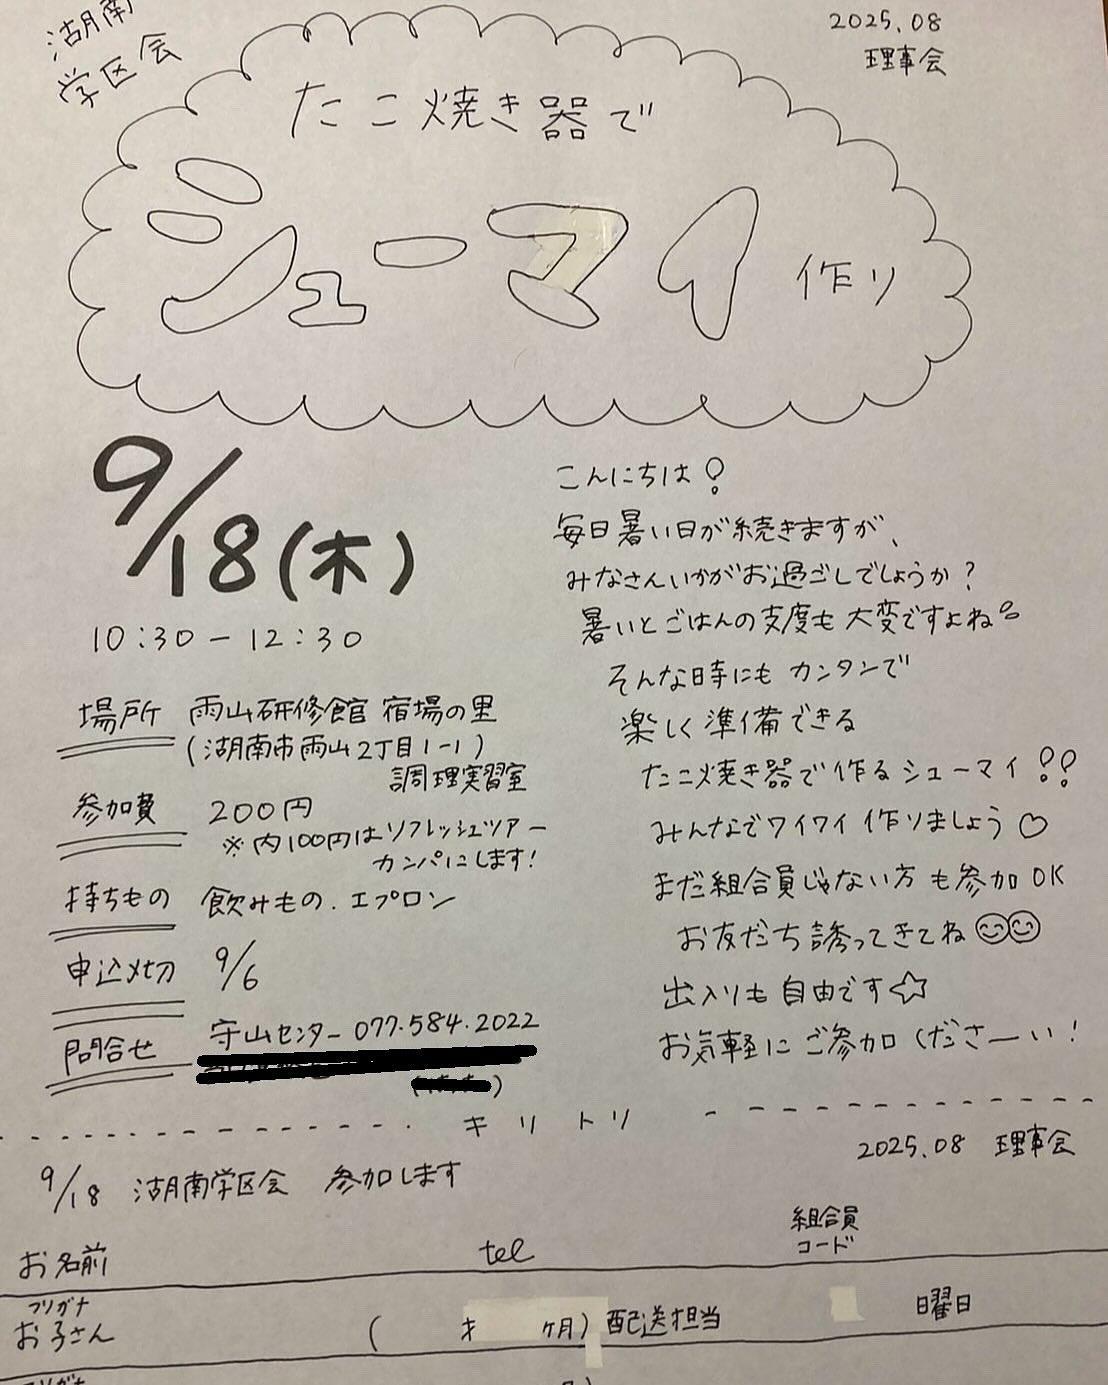 湖南
学区会
2025.08
理事会
たこ焼き器で
シューマイ作り
9/18(木)
10:30-12:30
場所 雨山研修館 宿場の里
(湖南市雨山2丁目1-1)
調理実習室
参加費 200円
※内100円はリフレッシュツアー
カンパにします!
持ちもの 飲みもの、エプロン
申込〆切 9/6
問合せ 守山センター 077.584.2022
こんにちは!
毎日暑い日が続きますが、
みなさんいかがお過ごしでしょうか?
暑いとごはんの支度も大変ですよね。
そんな時にもカンタンで
楽しく準備できる
たこ焼き器で作るシューマイ!!
みんなでワイワイ作りましょう♡
まだ組合員じゃない方も参加OK
お友だち誘ってきてね
出入りも自由です☆
お気軽にご参加くださーい!
キリトリ
2025.08 理事会
9/18 湖南学区会 参加します
お名前 tel 組合員
コード
フリガナ
お子さん ( 才 ヶ月) 配送担当 曜日
フリガナ